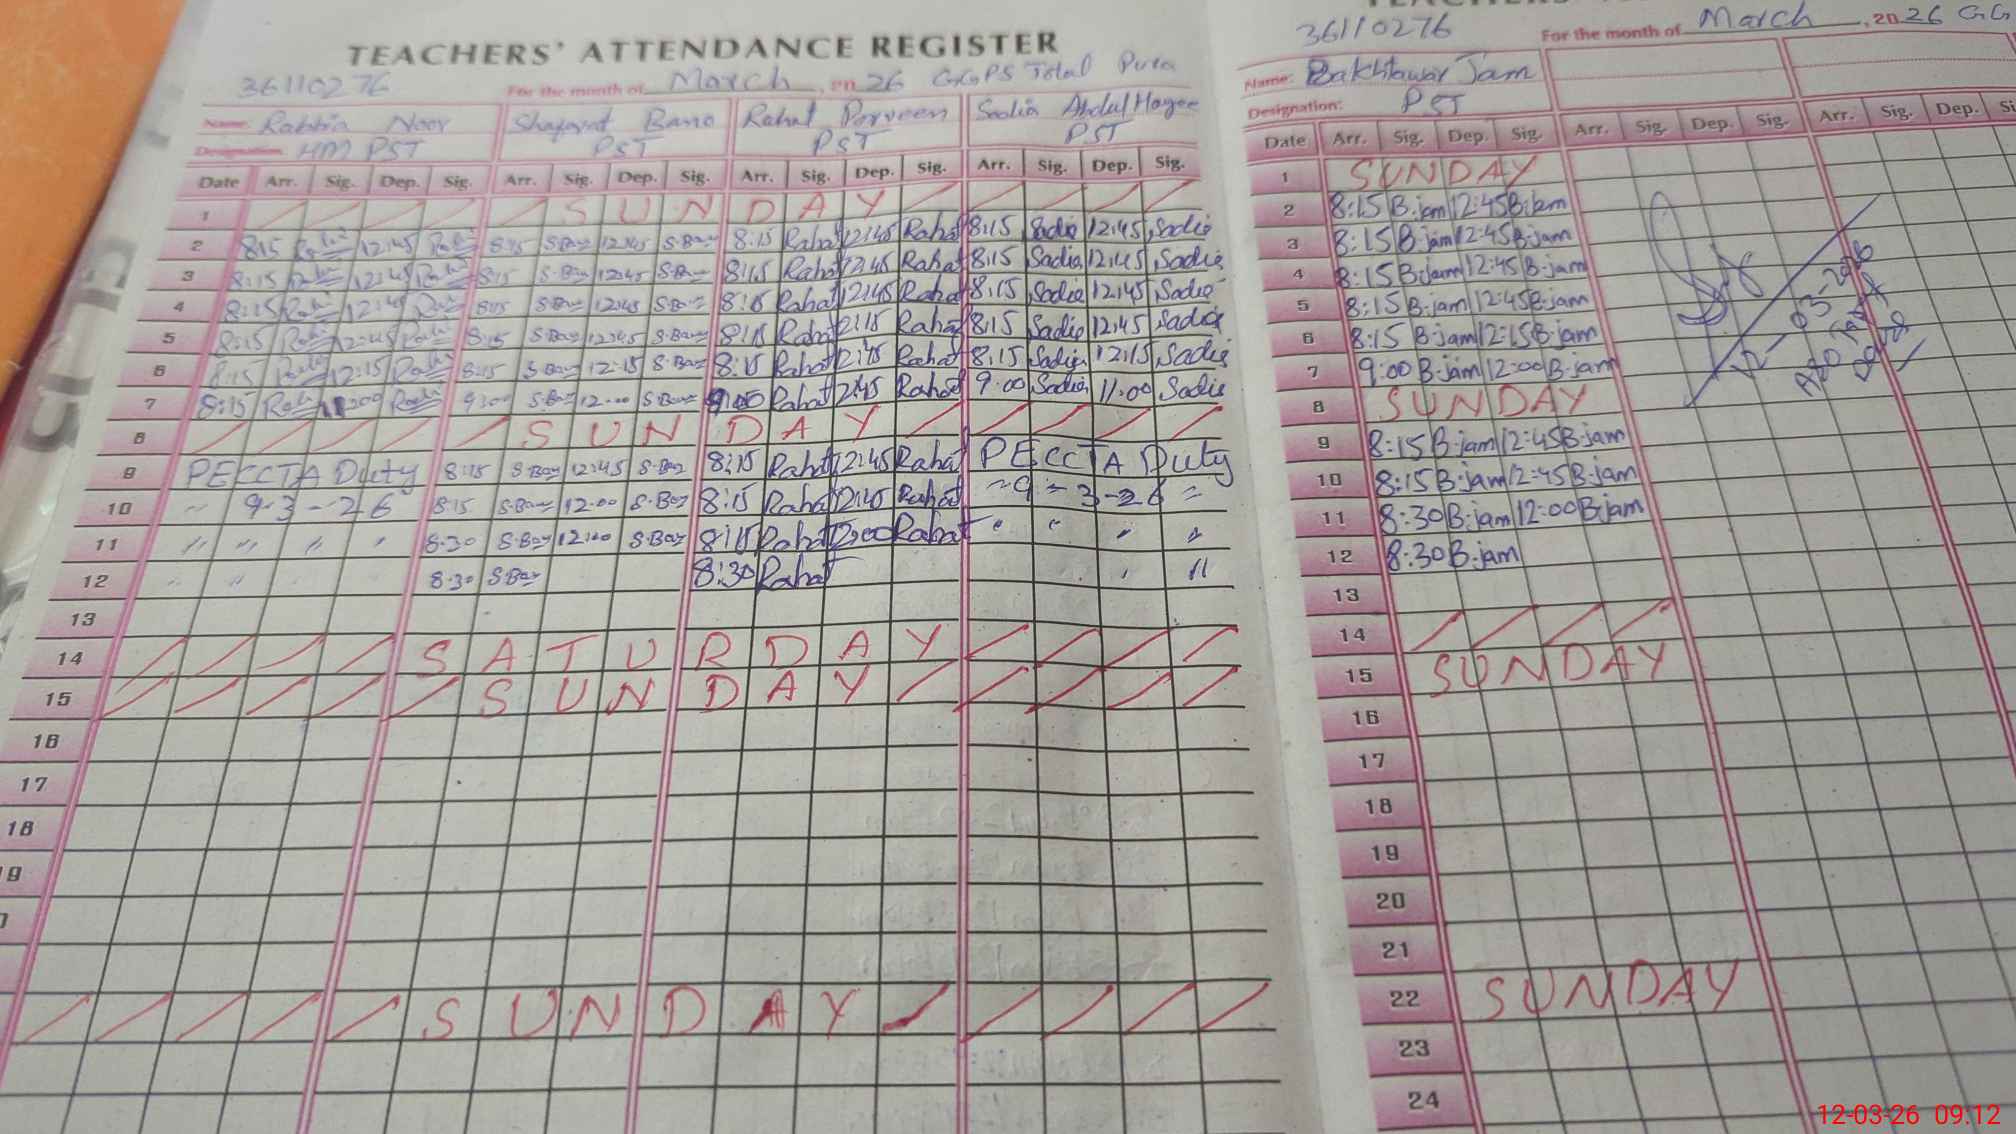 TEACHERS' ATTENDANCE REGISTER
36110276 For the month of March, 20 26 G.G.P.S Total Pura
Name: Rabbia Noor Shafaqat Bano Rahat Parveen Sadia Abdul Hayee
Designation: HM PST PST PST PST
Date Arr. Sig. Dep. Sig. Arr. Sig. Dep. Sig. Arr. Sig. Dep. Sig. Arr. Sig. Dep. Sig.
1 SUNDAY
2 8:15 12:45 8:15 S.Bano 12:45 S.Bano 8:15 Rahat 12:45 Rahat 8:15 Sadia 12:45 Sadia
3 8:15 12:45 8:15 S.Bano 12:45 S.Bano 8:15 Rahat 12:45 Rahat 8:15 Sadia 12:45 Sadia
4 8:15 12:45 8:15 S.Bano 12:45 S.Bano 8:15 Rahat 12:45 Rahat 8:15 Sadia 12:45 Sadia
5 8:15 12:45 8:15 S.Bano 12:45 S.Bano 8:15 Rahat Rahat 8:15 Sadia 12:45 Sadia
6 8:15 12:15 8:15 S.Bano 12:15 S.Bano 8:15 Rahat Rahat 8:15 Sadia 12:15 Sadia
7 8:15 9:00 S.Bano 12:00 S.Bano 9:00 Rahat 12:45 Rahat 9:00 Sadia 11:00 Sadia
8 SUNDAY
9 PECCTA Duty 8:15 S.Bano 12:45 S.Bano 8:15 Rahat 12:45 Rahat PECCTA Duty
10 " 9-3-26 8:15 S.Bano 12:00 S.Bano 8:15 Rahat Rahat 9-3-26
11 " " " " 8:30 S.Bano 12:00 S.Bano 8:15 Rahat 12:00 Rahat " " " "
12 " " 8:30 S.Bano 8:30 Rahat " "
13
14 SATURDAY
15 SUNDAY
16
17
18
SUNDAY
36110276 For the month of March, 20 26 G.G
Name: Bakhtawar Jam
Designation: PST
Date Arr. Sig. Dep. Sig. Arr. Sig. Dep. Sig. Arr. Sig. Dep.
1 SUNDAY
2 8:15 B.jam 12:45 B.jam
3 8:15 B.jam 12:45 B.jam
4 8:15 B.jam 12:45 B.jam
5 8:15 B.jam 12:45 B.jam
6 8:15 B.jam 12:15 B.jam
7 9:00 B.jam 12:00 B.jam
8 SUNDAY
9 8:15 B.jam 12:45 B.jam
10 8:15 B.jam 12:45 B.jam
11 8:30 B.jam 12:00 B.jam
12 8:30 B.jam
13
14
15 SUNDAY
16
17
18
19
20
21
22 SUNDAY
23
24
12-03-26 09:12